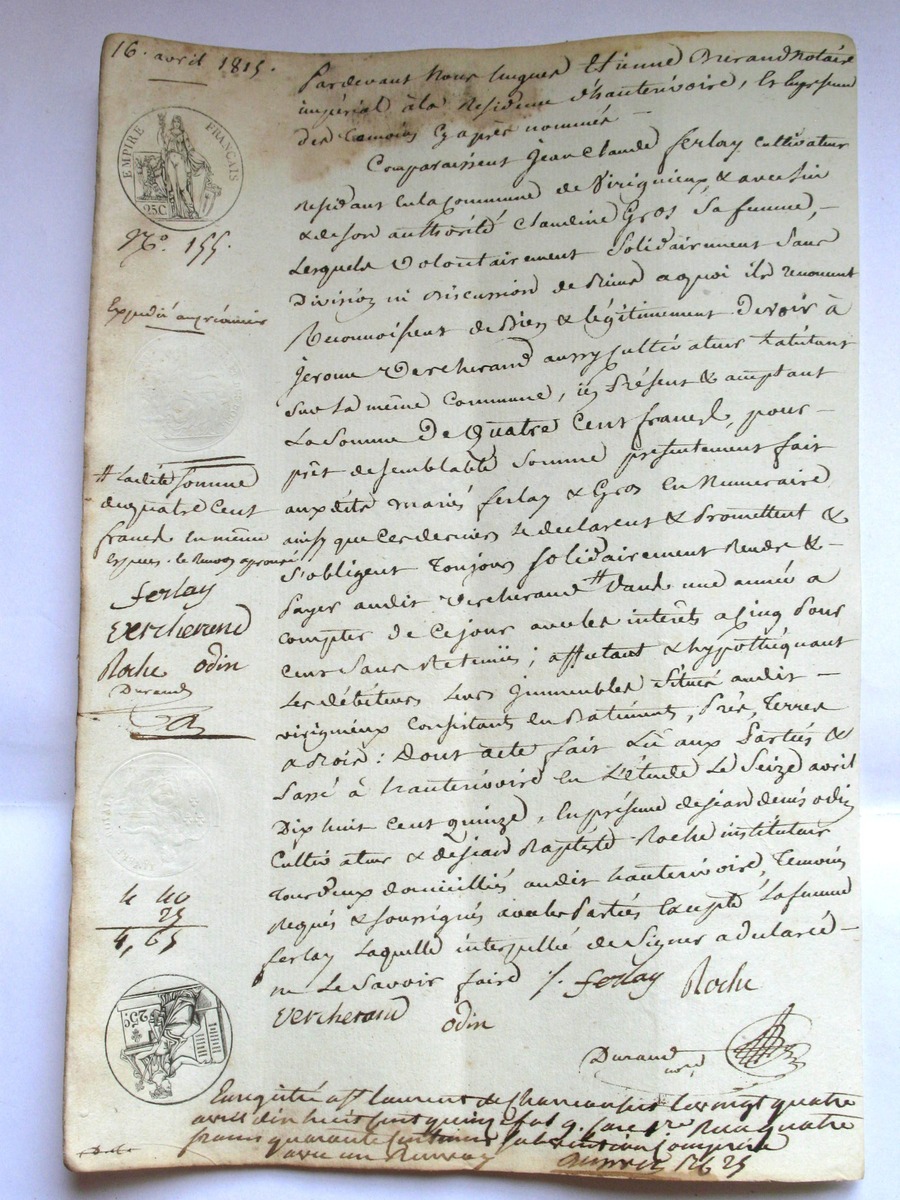 16. avril 1815.
EMPIRE FRANÇAIS
25C
N.º 155.
Expedié au créancier
# Ladite Somme
de quatre Cent
francs en même
espèces. le Renvoy aprouvé
ferlay
Vercherand
Roche odin
Durand
4 40
25
4,65
25C
Pardevant Nous hugues Etienne Durand Notaire
impérial à la Residence d'hauterivoire, En la presence
des temoins Cy après nommés —
Comparaissent Jean Claude ferlay Cultivateur
residant en la Commune de Virigneux & avec lui
& de son authorité Claudine Gros Sa femme, —
Lesquels Volontairement Solidairement Sans
Division ni Discussion de Biens a quoi ils renoncent
Reconnoissent de Bien & légitimement Devoir à
Jerome Vercherand aussy Cultivateur habitant
Sur la même Commune, icy Présent & acceptant
La Somme De Quatre Cent francs, pour —
prêt de semblable Somme presentement fait
auxdits mariés ferlay & Gros En Numeraire
ainsy que Ces derniers le declarent & Promettent &
S'obligent Toujours Solidairement Rendre & —
Payer audit Vercherand # Dans une année a
compter de Ce jour avec les interêts a Cinq Pour
Cent Sans Retenüe; affectant & hypothéquant
Les débiteurs Leurs Immeubles Situés audit —
virigneux Consistants en Batiments, Prés, Terres
& Bois: Dont acte fait Lû aux Parties &
Passé à hauterivoire En L'étude Le Seize avril
Dix huit Cent quinze, En présence de jean denis odin
Cultivateur & de Jean Baptiste Roche instituteur
Tous deux domicilliés audit hauterivoire, Temoins
Requis & Soussignés avec les Parties Excepté La femme
ferlay Laquelle interpellée de Signer a declaré —
ne Le Savoir faire ./. ferlay Roche
Vercherand odin
Durand
Enregistré a St Laurent de Chamousset le vingt quatre
avril dix huit Cent quinze fol 9. Case 1re Reçu quatre
francs quarante Centimes Subvention Comprise
avec un Renvoy